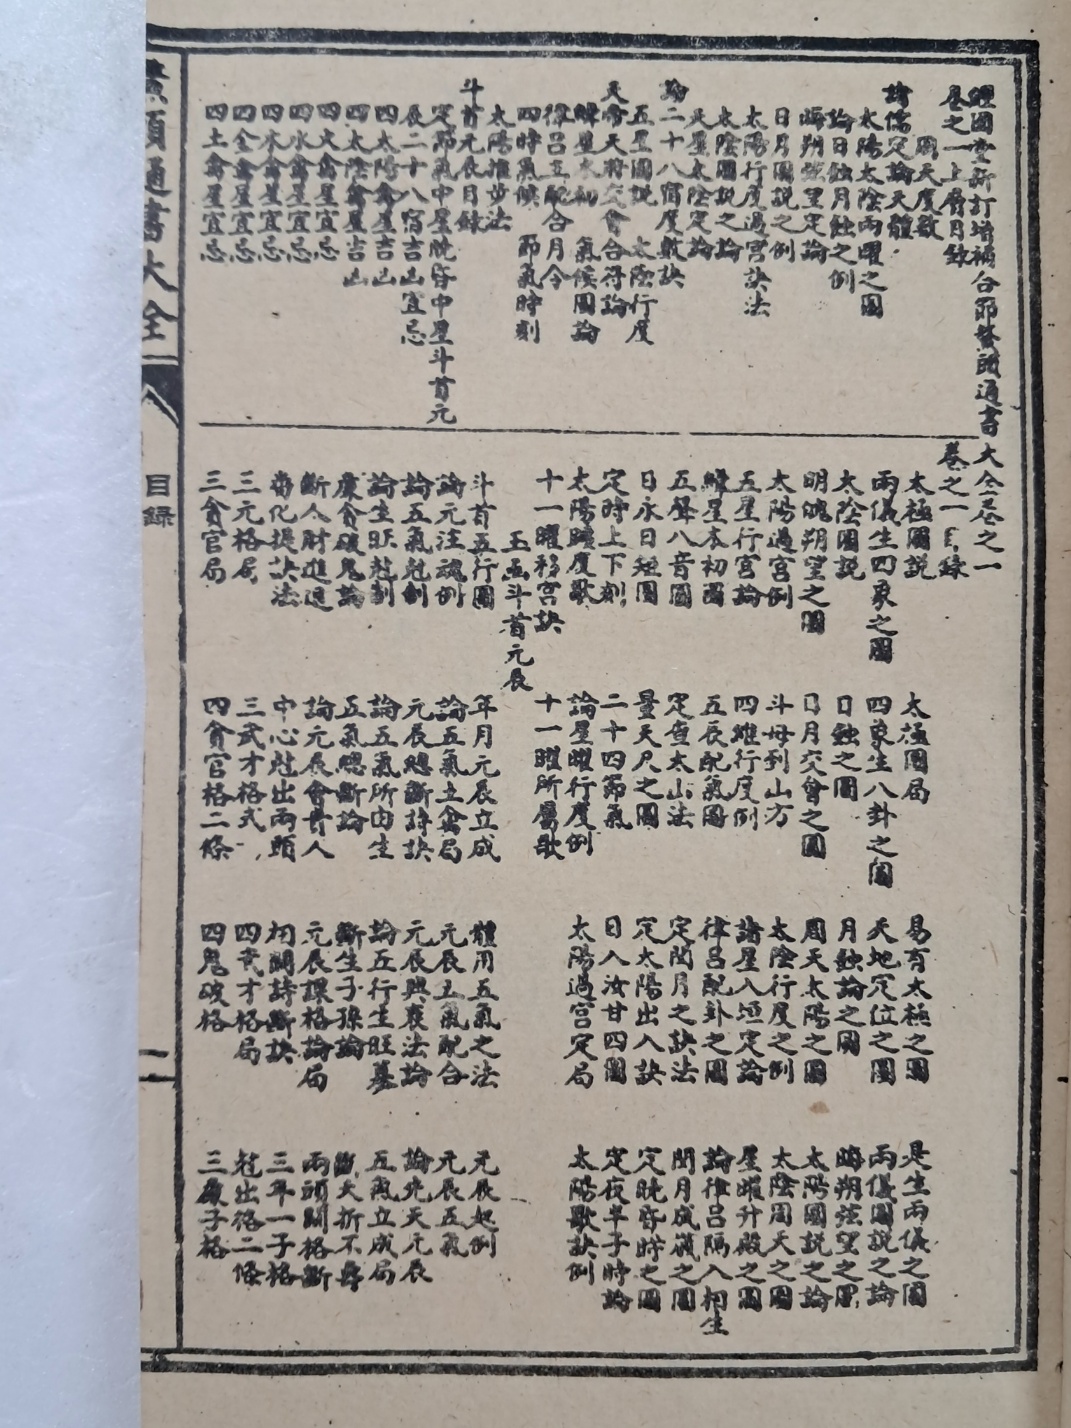 經國堂新訂增補合節鰲頭通書大全卷之一
卷之一上層目錄
周天度數
諸儒定論天體
太陽太陰兩曜之圖
論日蝕月蝕之例
晦朔弦望定論
日月圖說之例
太陽行度過宮訣法
太陰圖說之論
五星太陰定論
論二十八宿度數訣
五星圖說 太陰行度
天帝天將交會合符論
緯星本初 氣候圖論
律呂五配合月令
四時氣候 節氣時刻
太陽推步法
斗首元辰目錄
定節氣中星晄昏中星斗首元
辰二十八宿吉凶宜忌
四太陽禽星吉凶
四太陰禽星吉凶
四火禽星宜忌
四水禽星宜忌
四木禽星宜忌
四金禽星宜忌
四土禽星宜忌
卷之一目錄
太極圖說 太極圖局 易有太極之圖 是生兩儀之圖
兩儀生四象之圖 四象生八卦之圖 天地定位之圖 兩儀圖說之論
太陰圖說 日蝕之圖 月蝕論之圖 晦朔弦望之圖
明魄朔望之圖 日月交會之圖 周天太陽之圖 太陽圖說之論
太陽過宮例 斗母到山方 太陰行度之例 太陰周天之圖
五星行宮論 四維行度例 諸星八垣定論 星曜升殿之圖
緯星本初圖 五辰配氣圖 律呂配卦之圖 論律呂隔八相生
五聲八音圖 定查太山法 定閏月之訣法 閏月成歲之圖
日永日短圖 量天尺之圖 定太陽出入訣 定晄昏時之圖
定時上下刻 二十四節氣 日入汝甘四圖 定夜半子時論
太陽躔度歌 論星曜行度例 太陽過宮定局 太陽歌訣例
十一曜移宮訣 十一曜所屬歌
玉函斗首元辰
斗首五行圖 年月元辰立成 體用五氣之法 元辰起例
論元注魂例 論五氣立禽局 元辰五氣配合 元辰五氣
論五氣尅制 元辰總斷詩訣 元辰興衰法論 論先天元辰
論生旺尅制 論五氣所由生 論五行生旺墓 五氣立成局
廉貪破鬼論 五氣總斷論 斷生子孫論 斷夭折不壽
斷人財進退 論元辰會貴人 元辰課格論局 兩頭關格斷
畨化提訣法 中心尅出兩頭 相關詩斷訣 三年一子格
三元格局 三武才格式 四武才格局 尅出格二條
三貪官局 四貪官格二條 四鬼破格 三廉子格
鰲頭通書大全 八 目錄 二